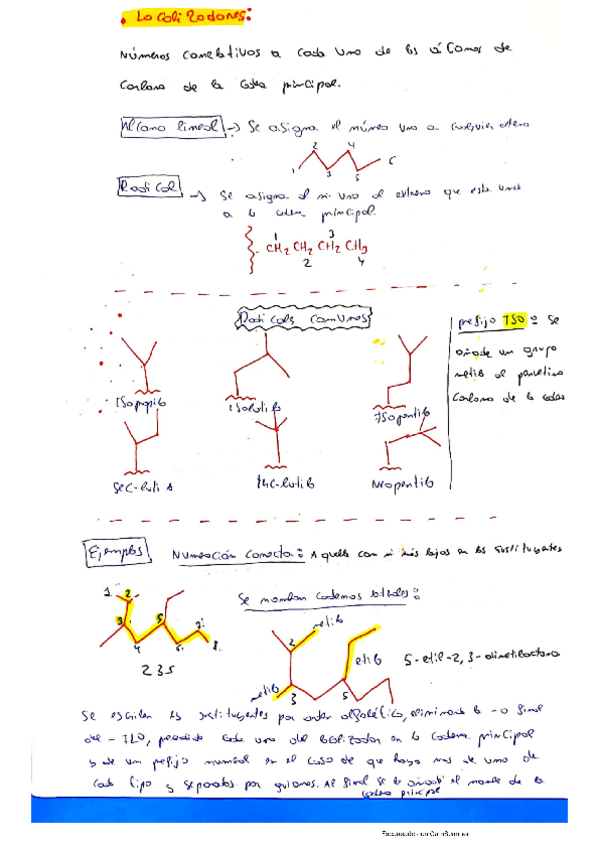 • Localizadores:
Números correlativos a cada uno de los átomos de
Carbono de la cadena principal.
Alcano lineal -> Se asigna el número uno a cualquier extremo
2 4 6
1 3 5
Radical -> Se asigna el nº uno al extremo que está unido
a la cadena principal.
1 3
CH2 CH2 CH2 CH3
2 4
Radicales comunes
prefijo ISO: Se
añade un grupo
metilo al penúltimo
Carbono de la cadena
Isopropilo Isobutilo Isopentilo
Sec-butilo terc-butilo Neopentilo
Ejemplos Numeración correcta: Aquella con nº más bajos en los sustituyentes
1 2 3 4 5 6 7 8
2 3 5
Se nombran cadenas laterales:
metilo
2
etilo
metilo
3 5
5-etil-2,3-dimetiloctano
Se escriben los sustituyentes por orden alfabético, eliminando la -o final
del -ILO, precedido cada uno del localizador en la cadena principal
y de un prefijo numeral en el caso de que haya más de uno de
cada tipo y separados por guiones. Al final se le añadirá el nombre de la
cadena principal
Escaneado con CamScanner